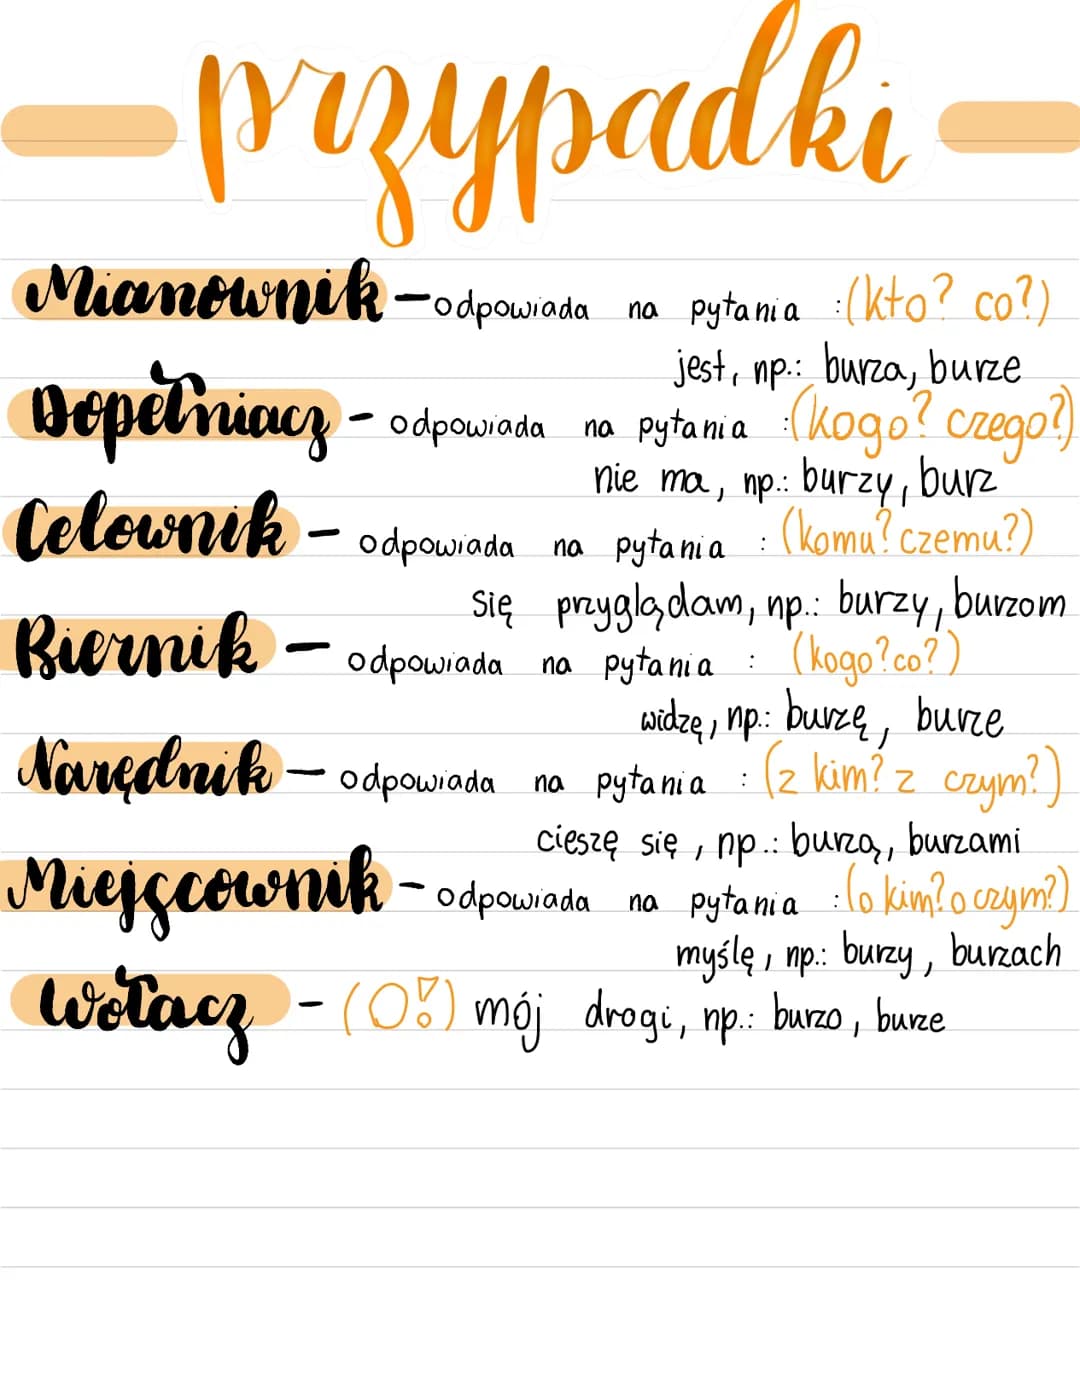 przypadki
Mianownik - odpowiada na pytania : (kto? co?)
jest, np.: burza, burze
Dopełniacz - odpowiada na pytania : (kogo? czego?)
nie ma, np.: burzy, burz
Celownik - odpowiada na pytania : (komu? czemu?)
się przyglądam, np.: burzy, burzom
Biernik - odpowiada na pytania : (kogo? co?)
widzę, np.: burzę, burze
Narędnik - odpowiada na pytania : (z kim? z czym?)
cieszę się, np.: burzą, burzami
Miejscownik - odpowiada na pytania : (o kim? o czym?)
myślę, np.: burzy, burzach
Wołacz - (O!) mój drogi, np.: burzo, burze